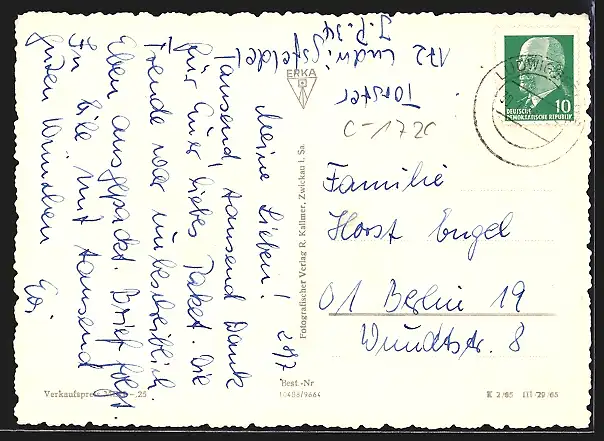 Meine Lieben! 29/7
Tausend, tausend Dank
für Euer liebes Paket. Die
Freude war unbeschreiblich.
Eben ausgepackt. Brief folgt.
In Eile mit tausend
guten Wünschen
J.P. 34
172 Ludwigsfelde
ERKA
C-1720
10
DEUTSCHE
DEMOKRATISCHE REPUBLIK
Familie
Horst Engel
01 Berlin 19
Wundtstr. 8
Fotografischer Verlag R. Kallmer, Zwickau i. Sa.
Verkaufspreis
-,25
Best.-Nr
10488/9664
K 2/65 III/29/65